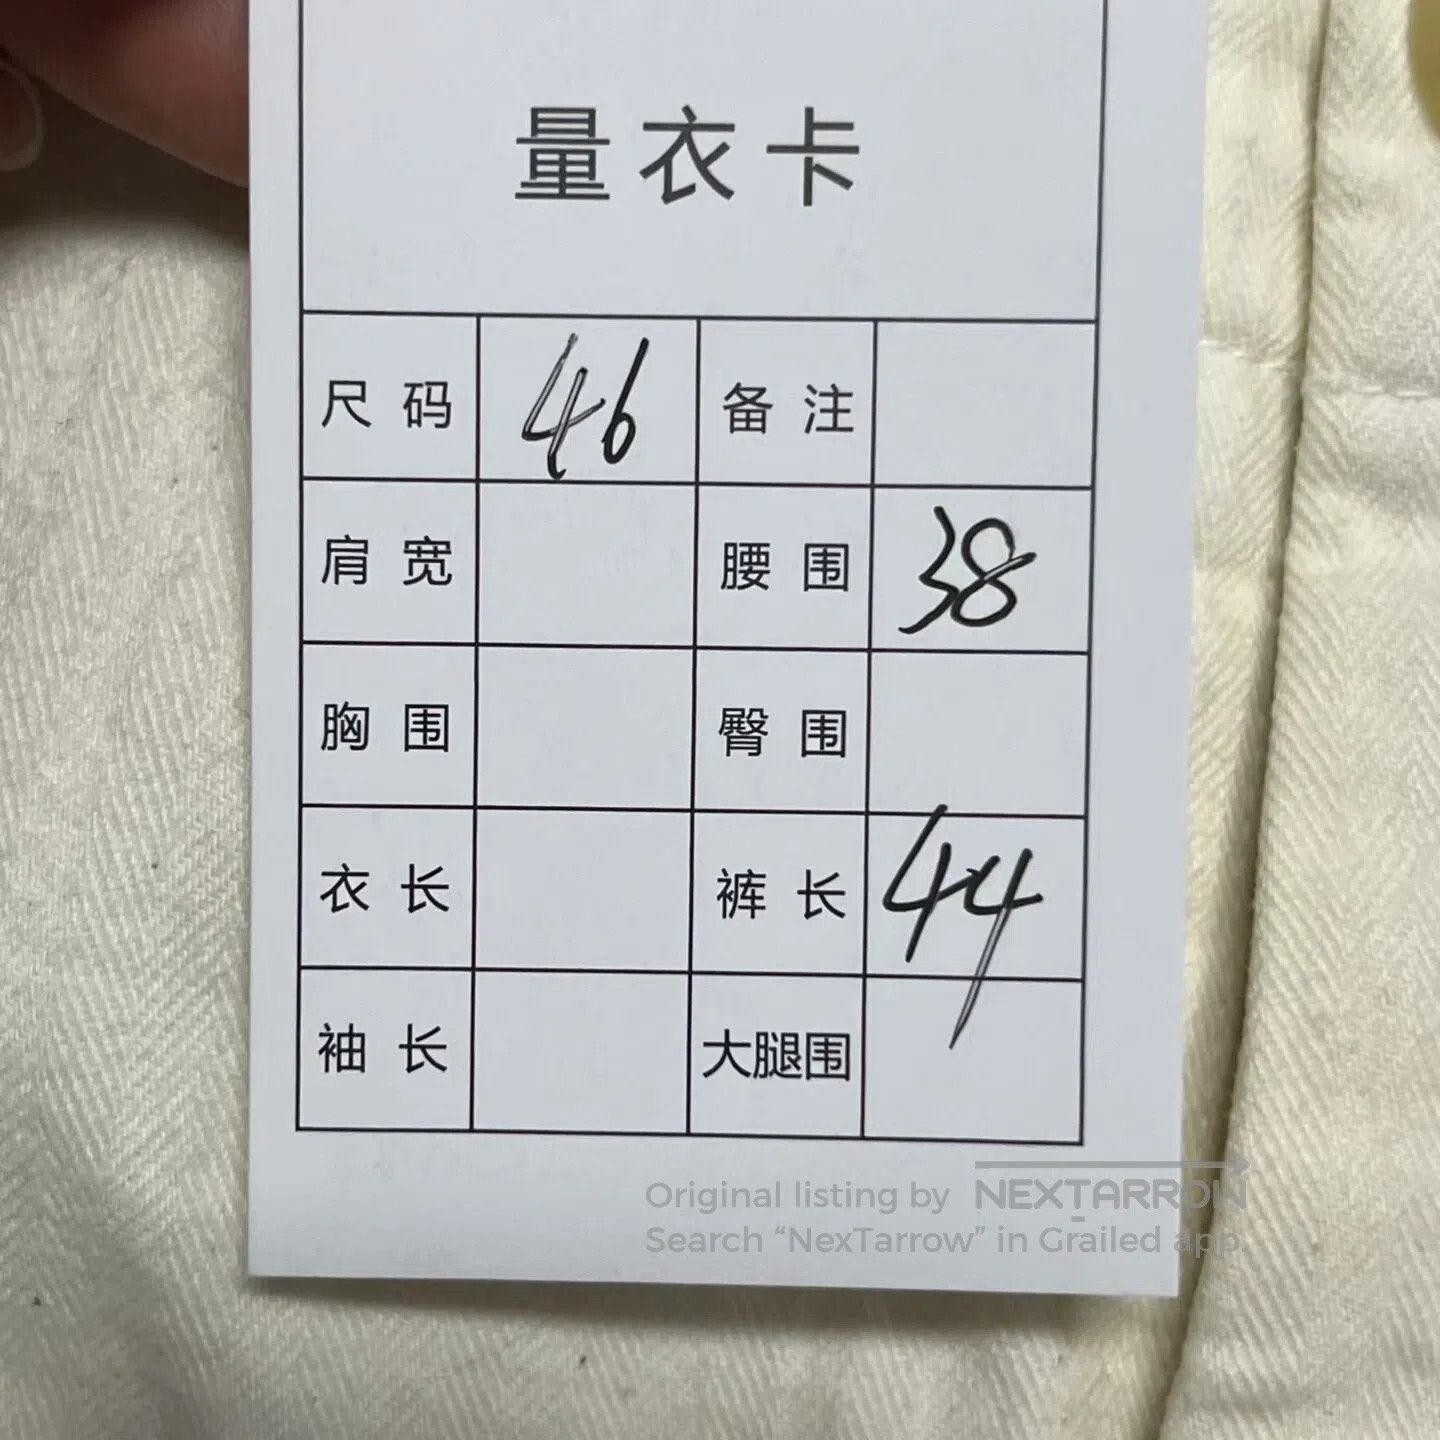 量衣卡
尺码 46 备注
肩宽 腰围 38
胸围 臀围
衣长 裤长 44
袖长 大腿围
Original listing by NEXTARROW
Search “NexTarrow” in Grailed app.